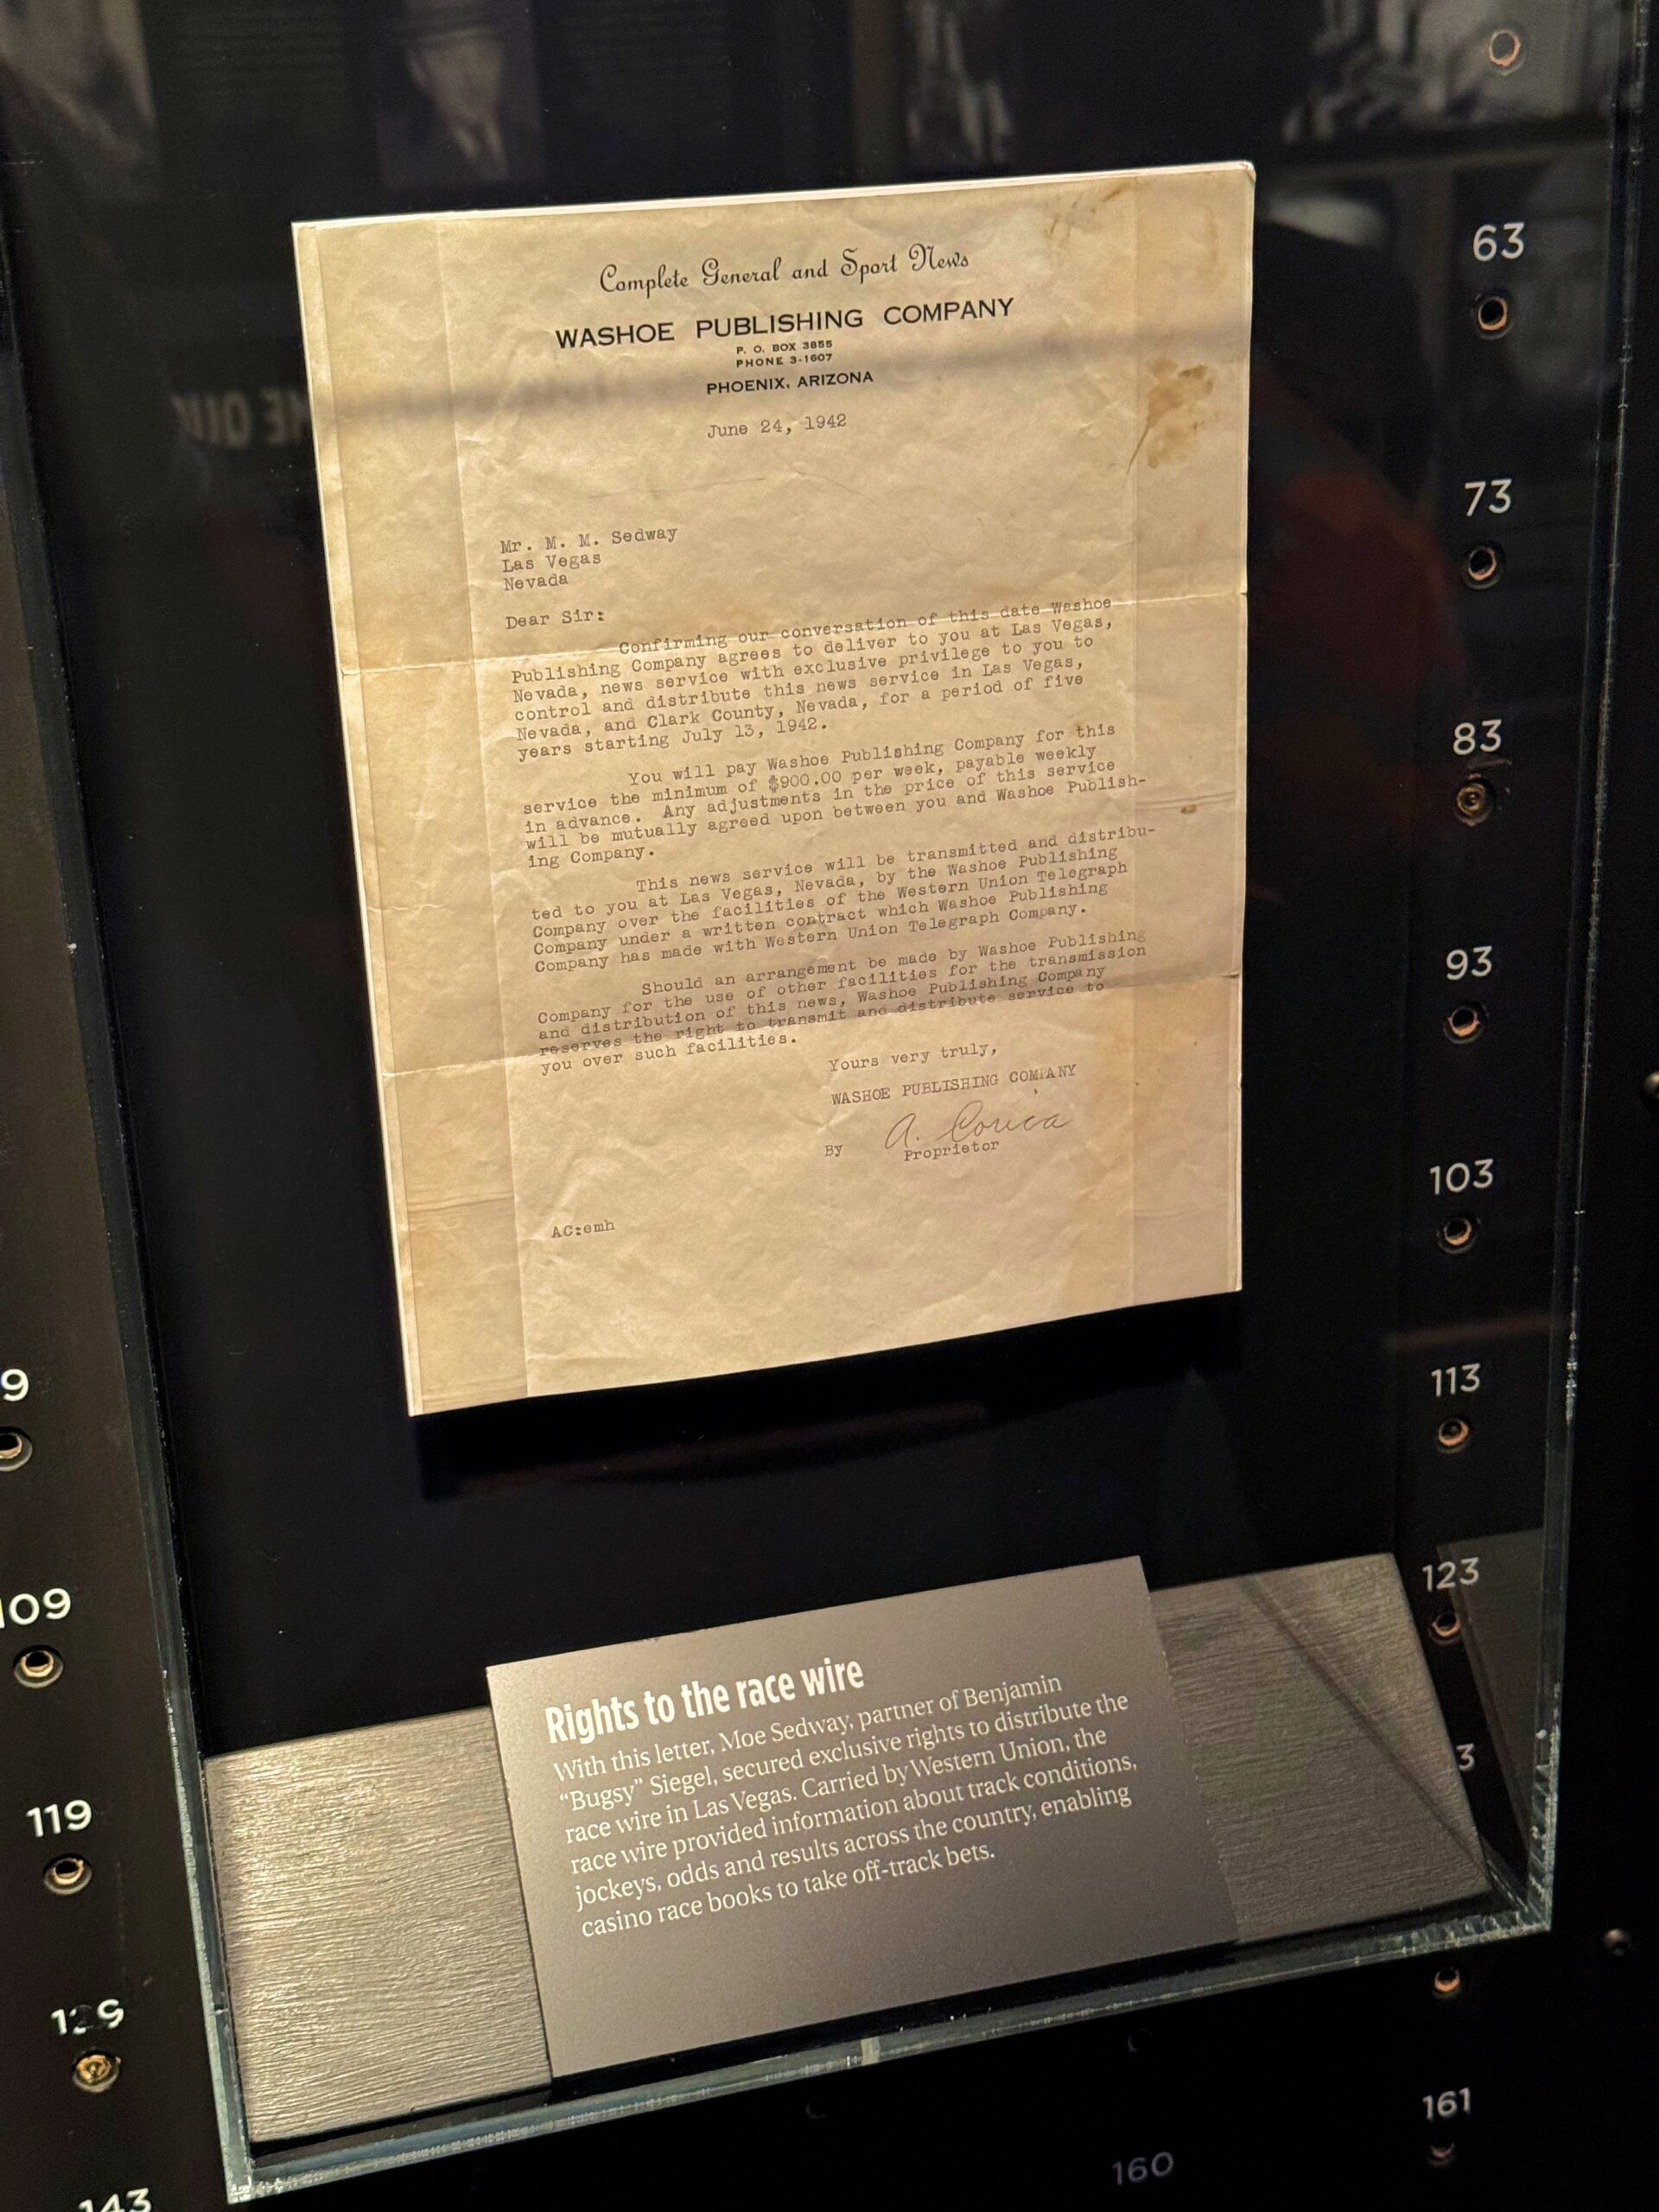 Complete General and Sport News
WASHOE PUBLISHING COMPANY
P. O. BOX 3855
PHONE 3-1607
PHOENIX, ARIZONA
June 24, 1942
Mr. M. M. Sedway
Las Vegas
Nevada
Dear Sir:
Confirming our conversation of this date Washoe
Publishing Company agrees to deliver to you at Las Vegas,
Nevada, news service with exclusive privilege to you to
control and distribute this news service in Las Vegas,
Nevada, and Clark County, Nevada, for a period of five
years starting July 13, 1942.
You will pay Washoe Publishing Company for this
service the minimum of $900.00 per week, payable weekly
in advance. Any adjustments in the price of this service
will be mutually agreed upon between you and Washoe Publish-
ing Company.
This news service will be transmitted and distribu-
ted to you at Las Vegas, Nevada, by the Washoe Publishing
Company over the facilities of the Western Union Telegraph
Company under a written contract which Washoe Publishing
Company has made with Western Union Telegraph Company.
Should an arrangement be made by Washoe Publishing
Company for the use of other facilities for the transmission
and distribution of this news, Washoe Publishing Company
reserves the right to transmit and distribute service to
you over such facilities.
Yours very truly,
WASHOE PUBLISHING COMPANY
By A. Corica
Proprietor
AC:emh
Rights to the race wire
With this letter, Moe Sedway, partner of Benjamin
“Bugsy” Siegel, secured exclusive rights to distribute the
race wire in Las Vegas. Carried by Western Union, the
race wire provided information about track conditions,
jockeys, odds and results across the country, enabling
casino race books to take off-track bets.
63
73
83
93
103
113
123
3
161
160
9
109
119
129
143